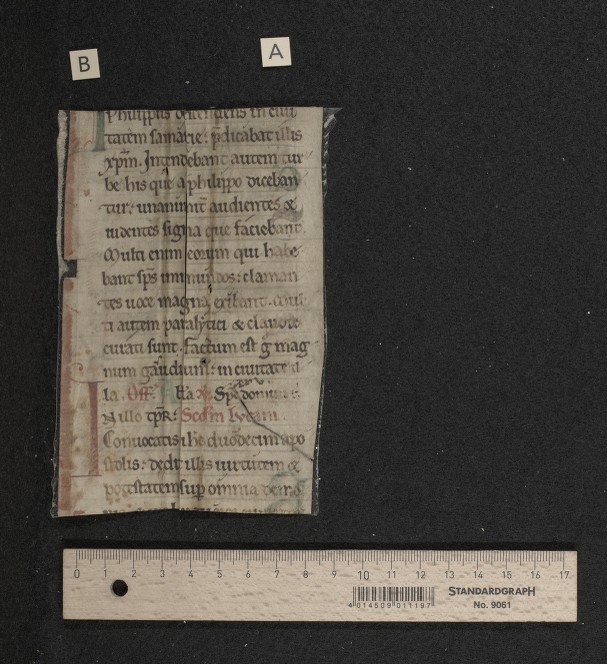 B A
Philippus descendens in ciui
tatem samarie: p̄dicabat illis
xp̄m. Intendebant autem tur
be his que a philippo diceban
tur. unanimit̄ audientes &
uidentes signa que faciebant.
Multi enim eorum qui habe
bant sp̄s inmundos: claman
tes uoce magna exibant. mul
ti autem paralytici & claudi
curati sunt. factum est g̊ mag
num gaudium: in ciuitate il
la. Off. Sp̄s domini
N illo tp̄r: Scd̄m lucam
Conuocatis ihc duodecim apo
stolis: dedit illis uirtutem &
potestatem sup omnia demo
0 1 2 3 4 5 6 7 8 9 10 11 12 13 14 15 16 17
STANDARDGRAPH
4 014509 011197
No. 9061